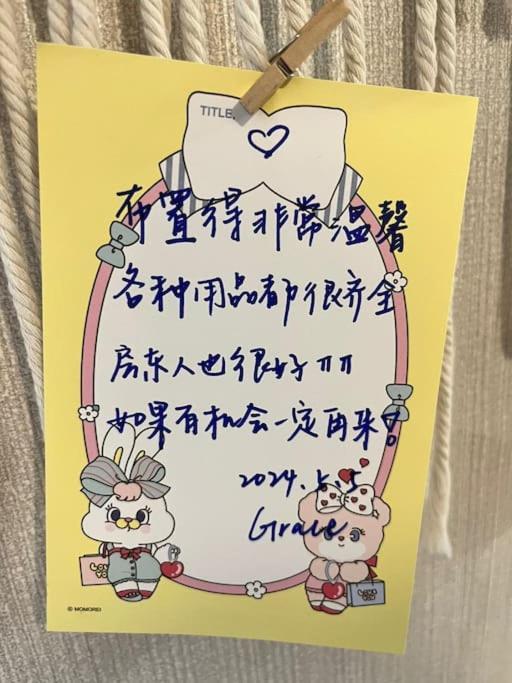 TITLE
布置得非常温馨
各种用品都很齐全
房东人也很好 π π
如果有机会一定再来!
2024.5.5
Grace
LOVE YOU
LOVE YOU
© MOMOREI